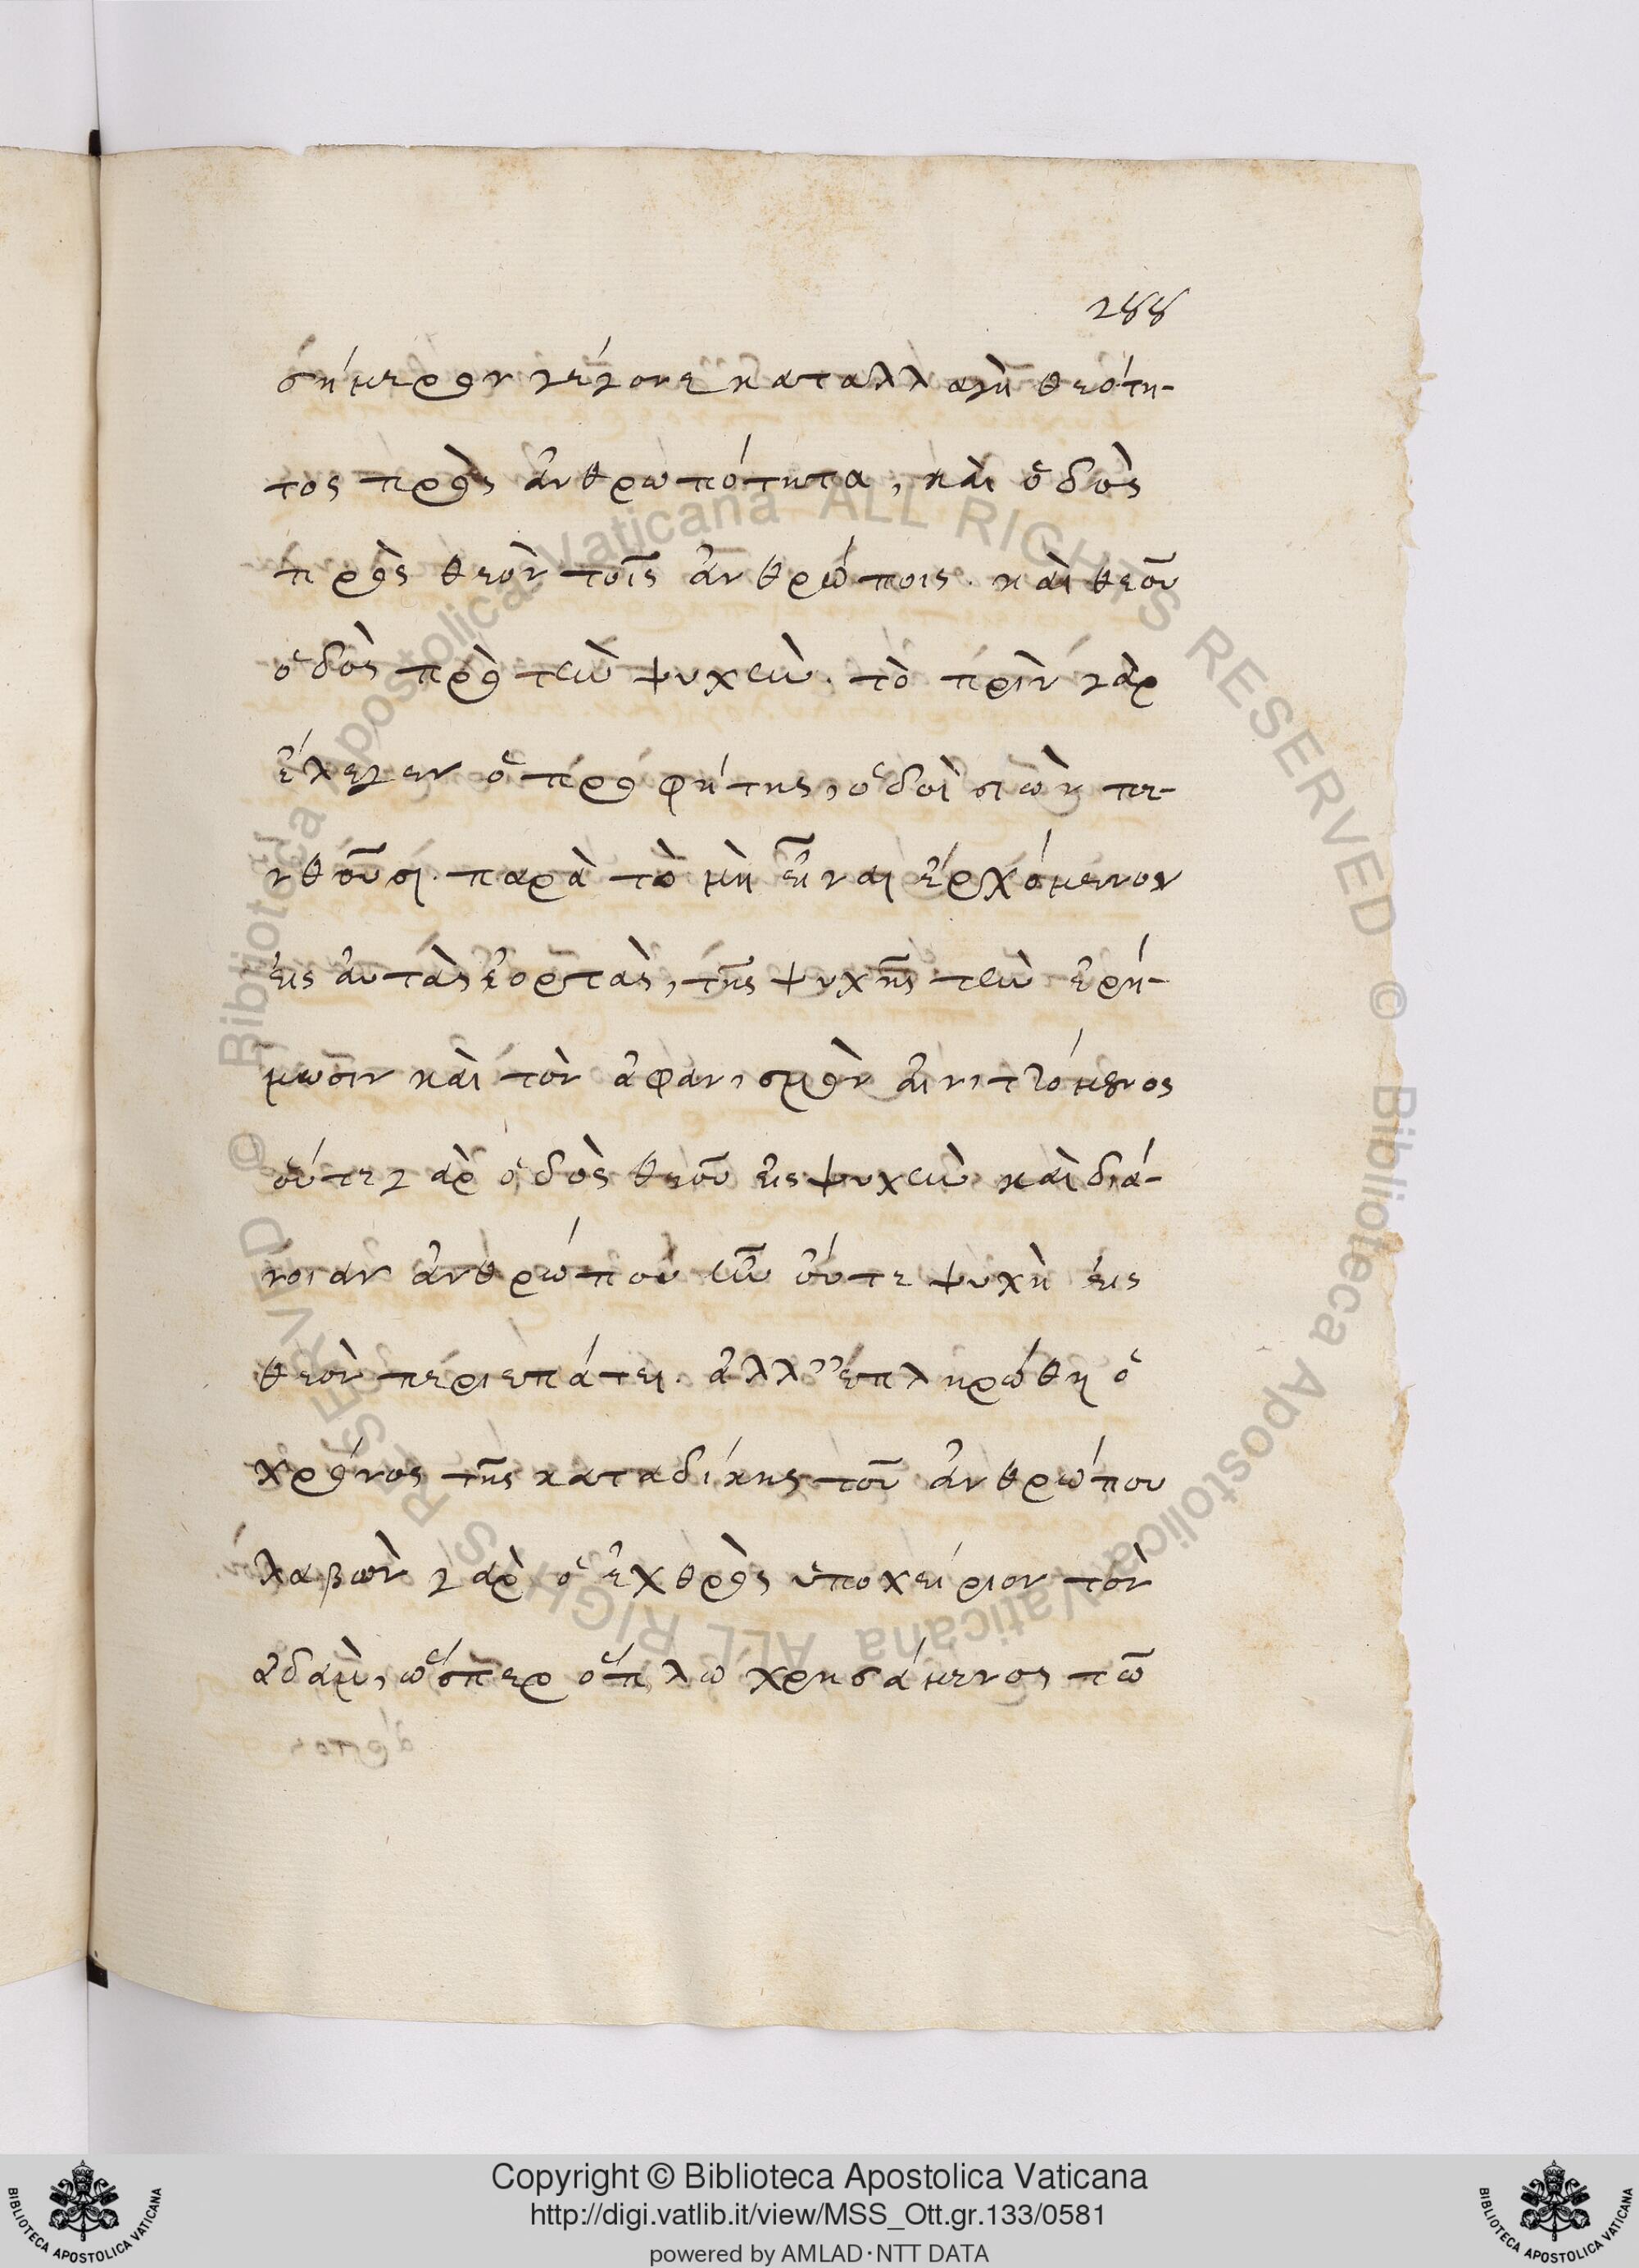 288
σήμερον γέγονε καταλλαγὴ θεότη-
τος πρὸς ἀνθρωπότητα, καὶ ὁδὸς
πρὸς θεὸν τοῖς ἀνθρώποις. καὶ θεοῦ
ὁδὸς πρὸ τὴν ψυχὴν. τὸ πρὶν γὰρ
ἔλεγεν ὁ προφήτης, ὁδοὶ σιὼν πε-
νθοῦσι. παρὰ τὸ μὴ εἶναι ἐρχόμενον
εἰς αὐτὰς ἑορτὰς, τῆς ψυχῆς τὴν ἐρή-
μωσιν καὶ τὸν ἀφανισμὸν αἰνιττόμενος
οὔτε γὰρ ὁδὸς θεοῦ εἰς ψυχὴν καὶ διά-
νοιαν ἀνθρώπου ἦν οὔτε ψυχὴ εἰς
θεὸν περιεπάτει. ἀλλ' ἐπληρώθη ὁ
χρόνος τῆς καταδίκης τοῦ ἀνθρώπου
λαβὼν γὰρ ὁ ἐχθρὸς ὑποχείριον τὸν
ἀδὰμ, ὥσπερ ὅπλω χρησάμενος τῶ
Copyright © Biblioteca Apostolica Vaticana
http://digi.vatlib.it/view/MSS_Ott.gr.133/0581
powered by AMLAD·NTT DATA
BIBLIOTECA APOSTOLICA VATICANA
BIBLIOTECA APOSTOLICA VATICANA
© Biblioteca Apostolica Vaticana ALL RIGHTS RESERVED © Biblioteca Apostolica Vaticana ALL RIGHTS RESERVED